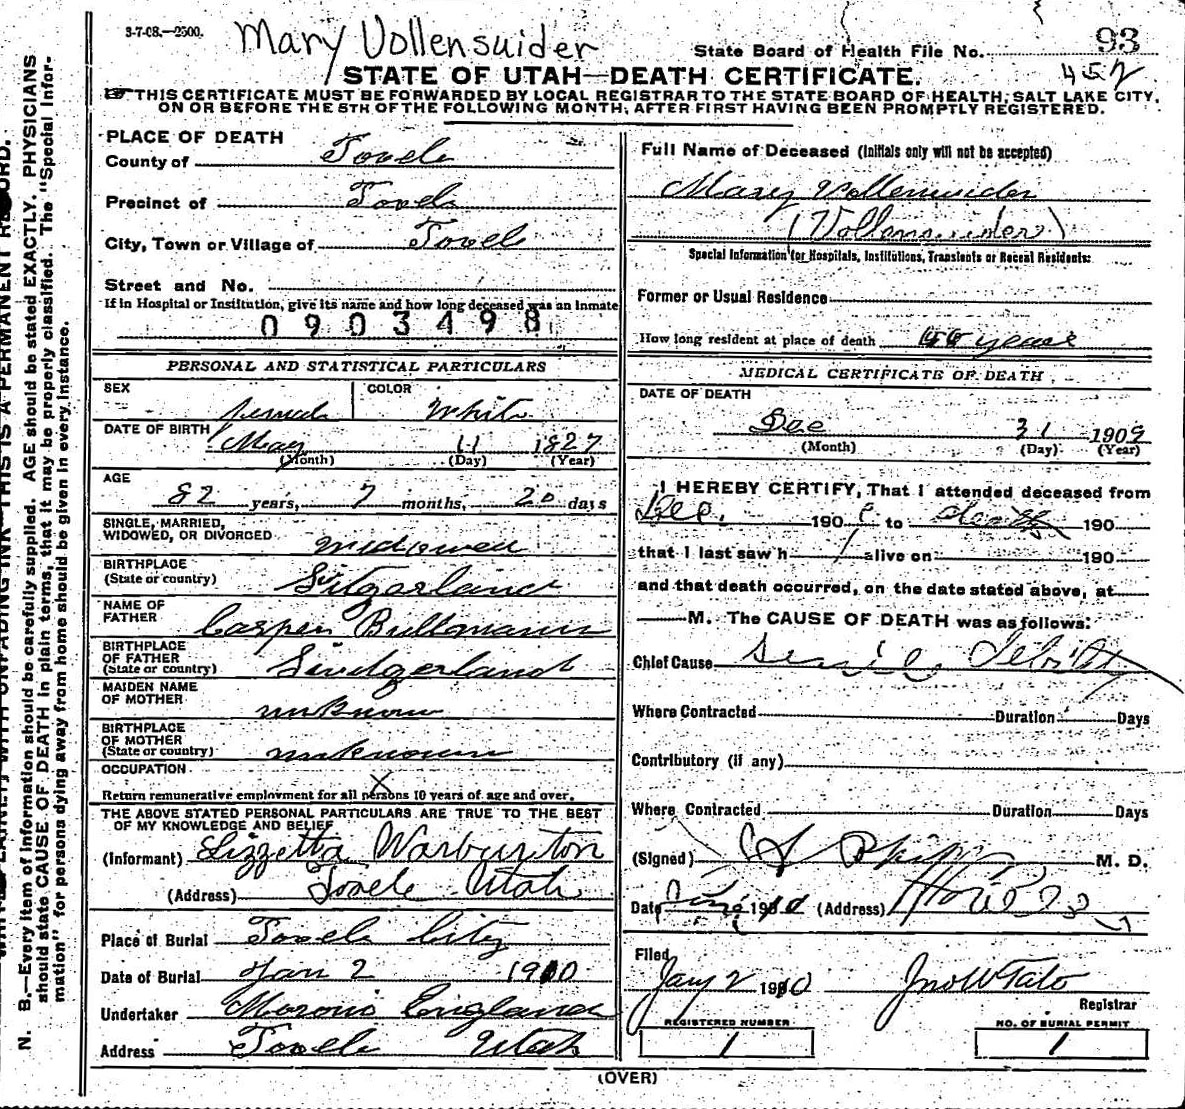 3-7-08.—2500.
Mary Vollensuider
State Board of Health File No. 93
452
STATE OF UTAH—DEATH CERTIFICATE.
THIS CERTIFICATE MUST BE FORWARDED BY LOCAL REGISTRAR TO THE STATE BOARD OF HEALTH, SALT LAKE CITY,
ON OR BEFORE THE 5TH OF THE FOLLOWING MONTH, AFTER FIRST HAVING BEEN PROMPTLY REGISTERED.
N. B.—Every item of information should be carefully supplied. AGE should be stated EXACTLY. PHYSICIANS
should state CAUSE OF DEATH in plain terms, that it may be properly classified. The "Special Infor-
mation" for persons dying away from home should be given in every instance.
PLACE OF DEATH
County of Tooele
Precinct of Tooele
City, Town or Village of Tooele
Street and No.
If in Hospital or Institution, give its name and how long deceased was an Inmate
0903498
PERSONAL AND STATISTICAL PARTICULARS
SEX Female
COLOR White
DATE OF BIRTH May 11 1827
(Month) (Day) (Year)
AGE
82 years, 7 months, 20 days
SINGLE, MARRIED,
WIDOWED, OR DIVORCED Widowed
BIRTHPLACE
(State or country) Sitgerland
NAME OF
FATHER Casper Bullmann
BIRTHPLACE
OF FATHER
(State or country) Sindgerland
MAIDEN NAME
OF MOTHER unknown
BIRTHPLACE
OF MOTHER
(State or country) unknown
OCCUPATION X
Return remunerative employment for all persons 10 years of age and over.
THE ABOVE STATED PERSONAL PARTICULARS ARE TRUE TO THE BEST
OF MY KNOWLEDGE AND BELIEF
(Informant) Lizzetta Warburton
(Address) Tooele Utah
Place of Burial Tooele City
Date of Burial Jan 2 1910
Undertaker Moroni England
Address Tooele Utah
Full Name of Deceased (Initials only will not be accepted)
Mary Vollenwider
(Vollanswider)
Special Information for Hospitals, Institutions, Transients or Recent Residents:
Former or Usual Residence
How long resident at place of death years
MEDICAL CERTIFICATE OF DEATH
DATE OF DEATH
Dec 31 1909
(Month) (Day) (Year)
I HEREBY CERTIFY, That I attended deceased from
Dec. 190 to death 190
that I last saw h alive on 190
and that death occurred, on the date stated above, at
M. The CAUSE OF DEATH was as follows:
Chief Cause Senile Debility
Where Contracted Duration Days
Contributory (if any)
Where Contracted Duration Days
(Signed) M. D.
Date 1910 (Address)
Filed
Jany 2 1910 Jno W Tate
Registrar
REGISTERED NUMBER
1
NO. OF BURIAL PERMIT
1
(OVER)